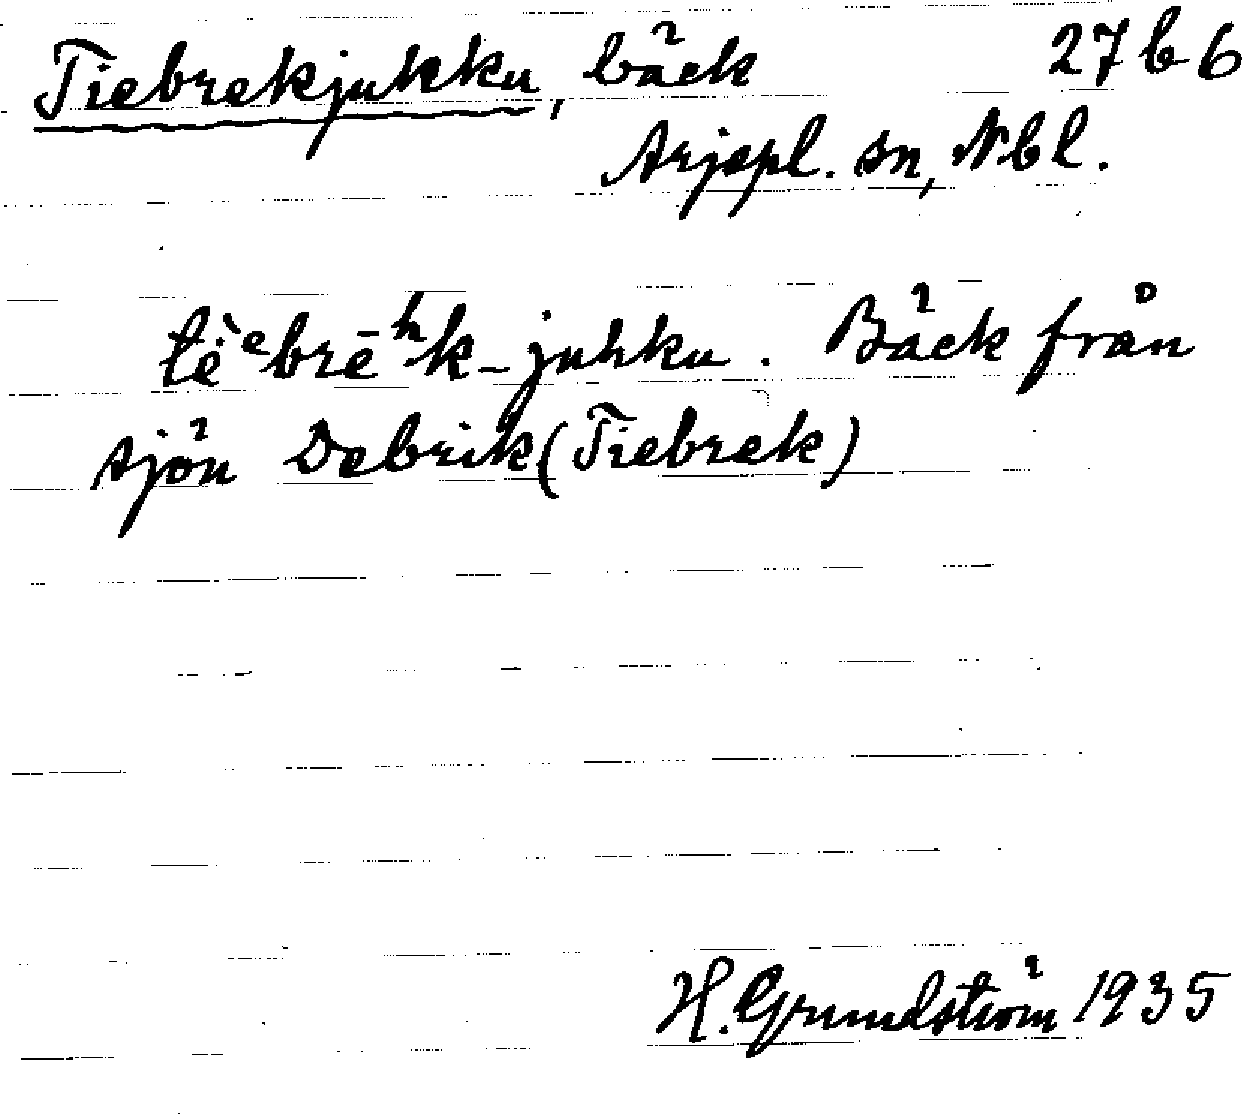 Tiebrekjukku, bäck 27 b 6
Arjepl. sn, Nbl.
tèᵉbrēʰk-juhku. Bäck från
sjön Debrik (Tiebrek)
H. Grundström 1935